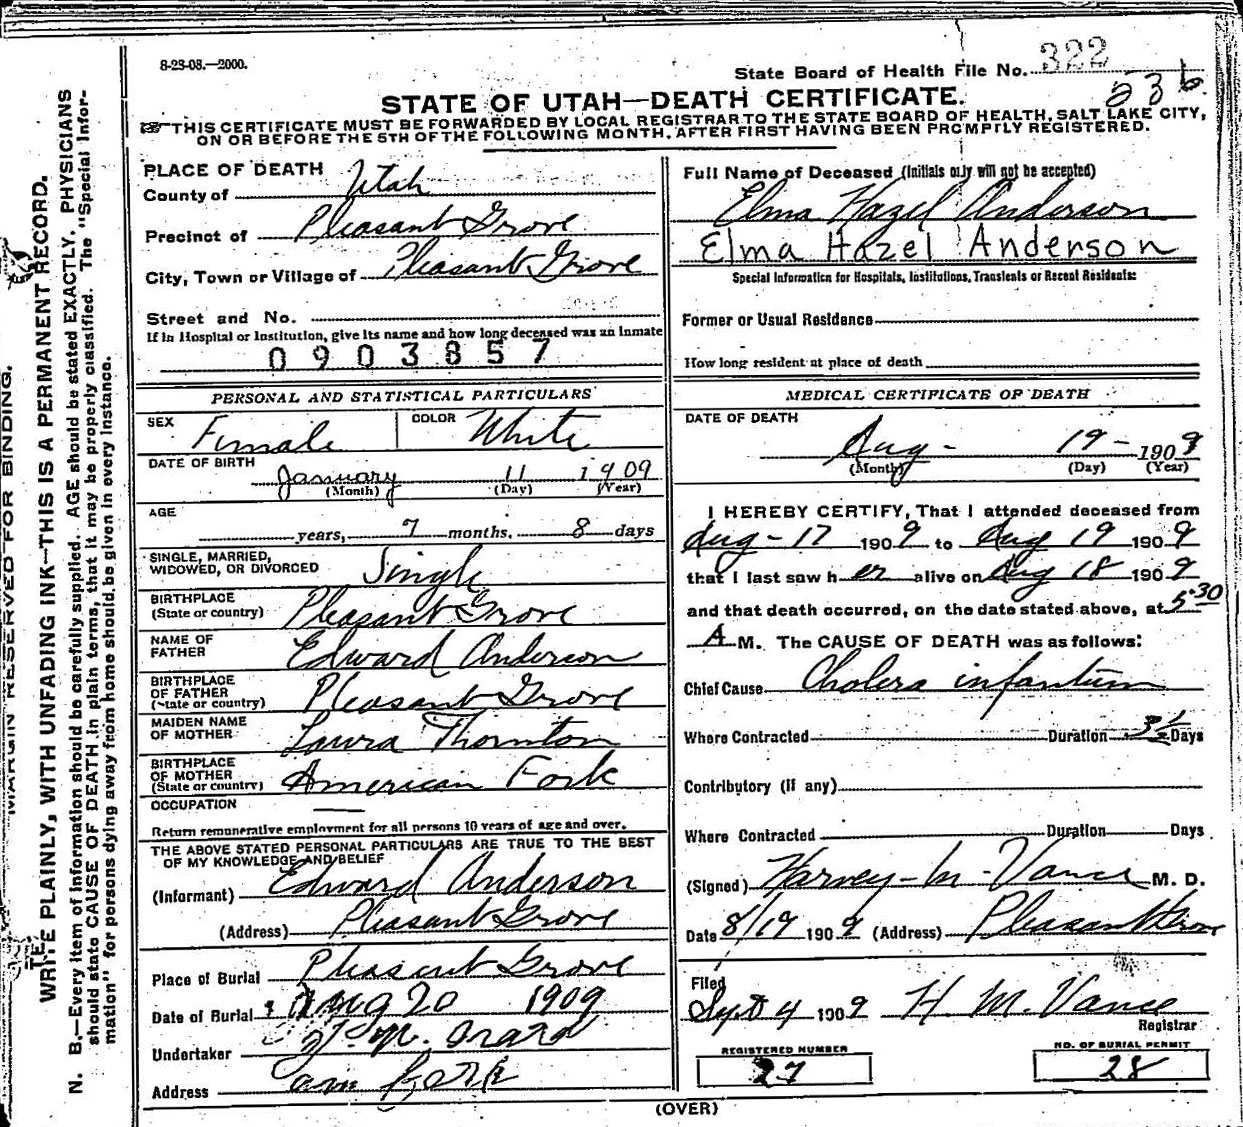 8-28-08.—2000.
State Board of Health File No. 322
236
STATE OF UTAH—DEATH CERTIFICATE.
THIS CERTIFICATE MUST BE FORWARDED BY LOCAL REGISTRAR TO THE STATE BOARD OF HEALTH, SALT LAKE CITY,
ON OR BEFORE THE 5TH OF THE FOLLOWING MONTH, AFTER FIRST HAVING BEEN PROMPTLY REGISTERED.
MARGIN RESERVED FOR BINDING.
WRITE PLAINLY, WITH UNFADING INK—THIS IS A PERMANENT RECORD.
N. B.—Every item of information should be carefully supplied. AGE should be stated EXACTLY. PHYSICIANS
should state CAUSE OF DEATH in plain terms, that it may be properly classified. The "Special Infor-
mation" for persons dying away from home should be given in every instance.
PLACE OF DEATH
County of Utah
Precinct of Pleasant Grove
City, Town or Village of Pleasant Grove
Street and No.
If in Hospital or Institution, give its name and how long deceased was an inmate
0903857
PERSONAL AND STATISTICAL PARTICULARS
SEX Female COLOR White
DATE OF BIRTH January 11 1909
(Month) (Day) (Year)
AGE years, 7 months, 8 days
SINGLE, MARRIED,
WIDOWED, OR DIVORCED Single
BIRTHPLACE
(State or country) Pleasant Grove
NAME OF
FATHER Edward Anderson
BIRTHPLACE
OF FATHER
(State or country) Pleasant Grove
MAIDEN NAME
OF MOTHER Laura Thornton
BIRTHPLACE
OF MOTHER
(State or country) American Fork
OCCUPATION
Return remunerative employment for all persons 10 years of age and over.
THE ABOVE STATED PERSONAL PARTICULARS ARE TRUE TO THE BEST
OF MY KNOWLEDGE AND BELIEF
(Informant) Edward Anderson
(Address) Pleasant Grove
Place of Burial Pleasant Grove
Date of Burial Aug 20 1909
Undertaker
Address Am Fork
Full Name of Deceased (Initials only will not be accepted)
Elma Hazel Anderson
Elma Hazel Anderson
Special Information for Hospitals, Institutions, Transients or Recent Residents:
Former or Usual Residence
How long resident at place of death
MEDICAL CERTIFICATE OF DEATH
DATE OF DEATH
Aug - 19 - 1909
(Month) (Day) (Year)
I HEREBY CERTIFY, That I attended deceased from
Aug - 17 1909 to Aug 19 1909
that I last saw her alive on Aug 18 1909
and that death occurred, on the date stated above, at 5:30
A M. The CAUSE OF DEATH was as follows:
Chief Cause Cholera infantum
Where Contracted Duration 3½ Days
Contributory (if any)
Where Contracted Duration Days
(Signed) Harvey - M - Vance M. D.
Date 8/19 1909 (Address) Pleasant Grove
Filed
Sept 4 1909 H. M. Vance
Registrar
REGISTERED NUMBER
27
NO. OF BURIAL PERMIT
28
(OVER)